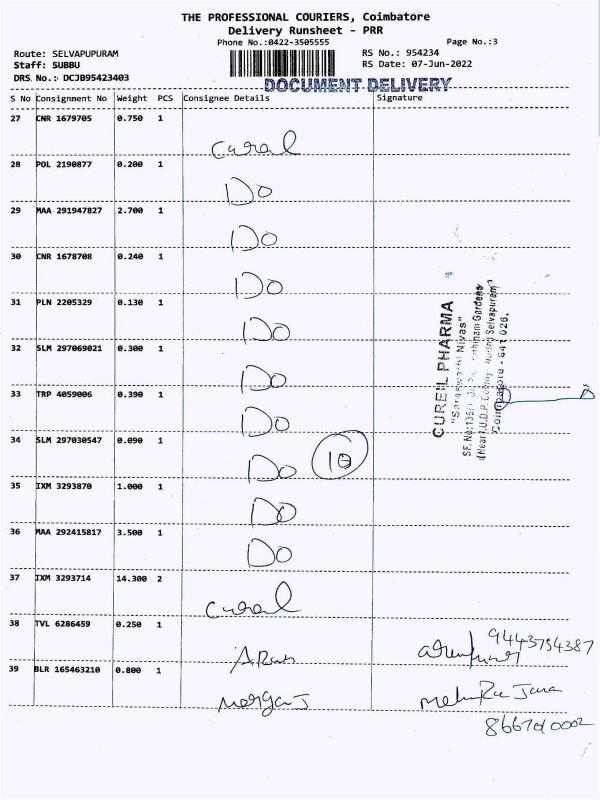 THE PROFESSIONAL COURIERS, Coimbatore
Delivery Runsheet - PRR
Phone No.:0422-3505555 Page No.:3
Route: SELVAPUPURAM RS No.: 954234
Staff: SUBBU RS Date: 07-Jun-2022
DRS. No.: DCJB95423403
DOCUMENT DELIVERY
S No Consignment No Weight PCS Consignee Details Signature
27 CNR 1679705 0.750 1
28 POL 2190877 0.200 1
Do
29 MAA 291947827 2.700 1
Do
30 CNR 1678708 0.240 1
Do
31 PLN 2205329 0.130 1
Do
32 SLM 297069021 0.300 1
Do
33 TRP 4059006 0.390 1
Do
34 SLM 297030547 0.090 1
Do 10
35 IXM 3293870 1.000 1
Do
36 MAA 292415817 3.500 1
Do
37 IXM 3293714 14.300 2
38 TVL 6286459 0.250 1
9443754387
39 BLR 165463210 0.800 1
CUREIL PHARMA
"Saraswathi Nivas"
Gardens
Selvapuram
Coimbatore - 641 026.